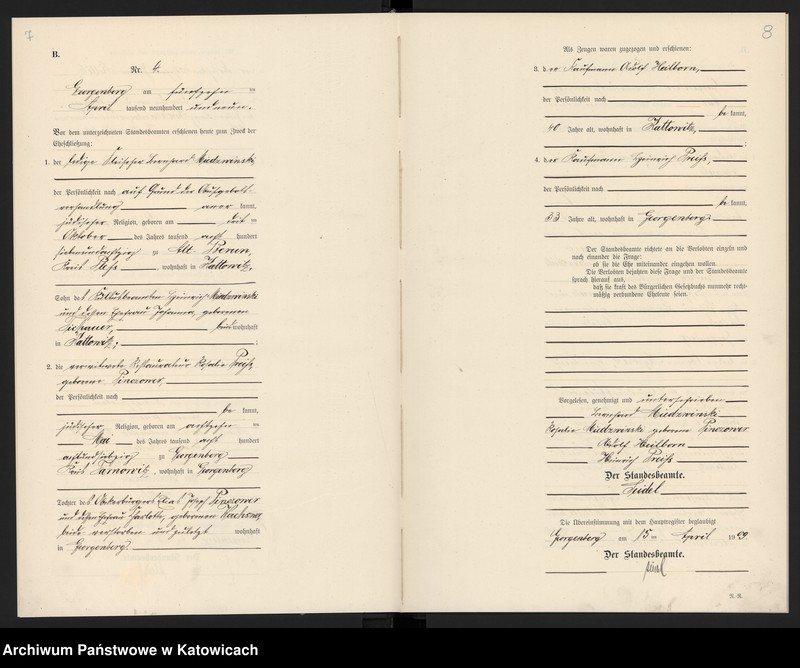 7
B.
Nr. 4.
Georgenberg am fünfzehnten
April tausend neunhundert und neun.
Vor dem unterzeichneten Standesbeamten erschienen heute zum Zweck der
Eheschließung:
1. der ledige Bernhard Miedzwinski,
der Persönlichkeit nach auf Grund der Aufgebots-
verhandlung anerkannt,
jüdischer Religion, geboren am
Oktober des Jahres tausend acht hundert
siebenundachtzig zu Alt Berun,
Kreis Pless, wohnhaft in Kattowitz,
Sohn des Heinrich Miedzwinski
und dessen Ehefrau Johanna, geborenen
Tichauer, wohnhaft
in Kattowitz;
2. die verwitwete Restaurateur Rosalie Preiß,
geborene Pinczower,
der Persönlichkeit nach
be kannt,
jüdischer Religion, geboren am achtzehnten
Mai des Jahres tausend acht hundert
achtundsiebzig zu Georgenberg
Kreis Tarnowitz, wohnhaft in Georgenberg
Tochter des Ackerbürgers Josef Pinczower
und dessen Ehefrau Charlotte, geborenen Wachsner
beide verstorben und zuletzt wohnhaft
in Georgenberg.
8
Als Zeugen waren zugezogen und erschienen:
3. der Kaufmann Adolf Heilborn,
der Persönlichkeit nach
be kannt,
40 Jahre alt, wohnhaft in Kattowitz,
4. der Kaufmann Heinrich Preiß,
der Persönlichkeit nach
be kannt,
33 Jahre alt, wohnhaft in Georgenberg
Der Standesbeamte richtete an die Verlobten einzeln und
nach einander die Frage:
ob sie die Ehe miteinander eingehen wollen.
Die Verlobten bejahten diese Frage und der Standesbeamte
sprach hierauf aus,
daß sie kraft des Bürgerlichen Gesetzbuchs nunmehr recht-
mäßig verbundene Eheleute seien.
Vorgelesen, genehmigt und unterschrieben
Bernhard Miedzwinski
Rosalie Miedzwinski geborene Pinczower
Adolf Heilborn
Heinrich Preiß
Der Standesbeamte.
Seidel
Die Übereinstimmung mit dem Hauptregister beglaubigt
Georgenberg am 15ten April 1909.
Der Standesbeamte.
Seidel
N.-R.
Archiwum Państwowe w Katowicach